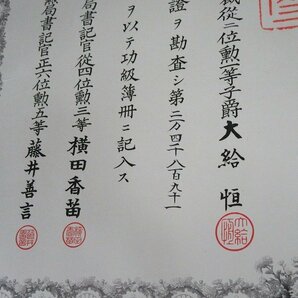 裁從二位勲一等子爵大給恒
證ヲ勘査シ第二万四千八百九十一
ヲ以テ功級簿冊ニ記入ス
局書記官從四位勲三等横田香苗
局書記官正六位勲五等藤井善言